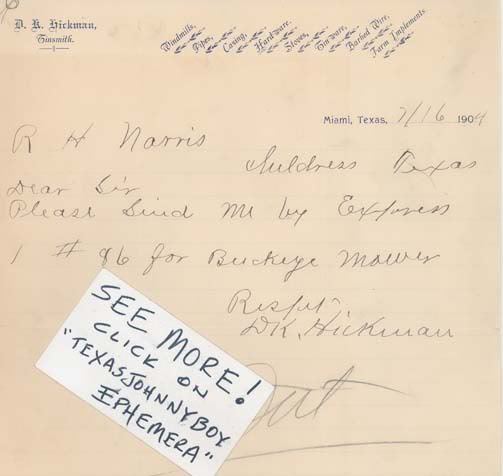 D. K. Hickman,
Tinsmith.
Windmills,
Pipes,
Casing,
Hardware.
Stoves,
Tinware,
Barbed Wire,
Farm Implements
Miami, Texas, 7/16 1904
R H Norris
Childress Texas
Dear Sir
Please Send Me by Express
1 # 86 for Buckeye Mower
Respt
DK. Hickman
SEE MORE!
CLICK ON
"TEXASJOHNNYBOY
EPHEMERA"